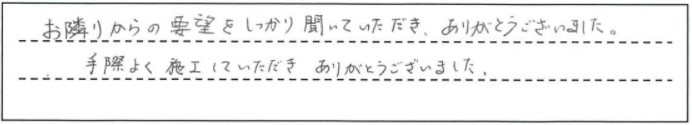 お隣りからの要望をしっかり聞いていただき、ありがとうございました。
手際よく施工していただきありがとうございました。